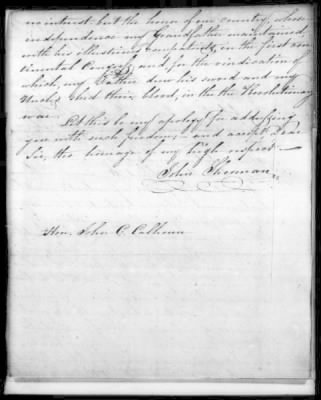 no interest but the honor of our country, whose
independence my Grandfather maintained,
with his illustrious compatriots, in the first con-
tinental Congress, and, for the vindication of
which, my Father drew his sword and my
Uncles shed their blood, in the the Revolutionary
war.
Let this be my apology for addressing
you with such freedom and accept, Dear
Sir, the homage of my high respect —
John Sherman.
Hon. John C. Calhoun